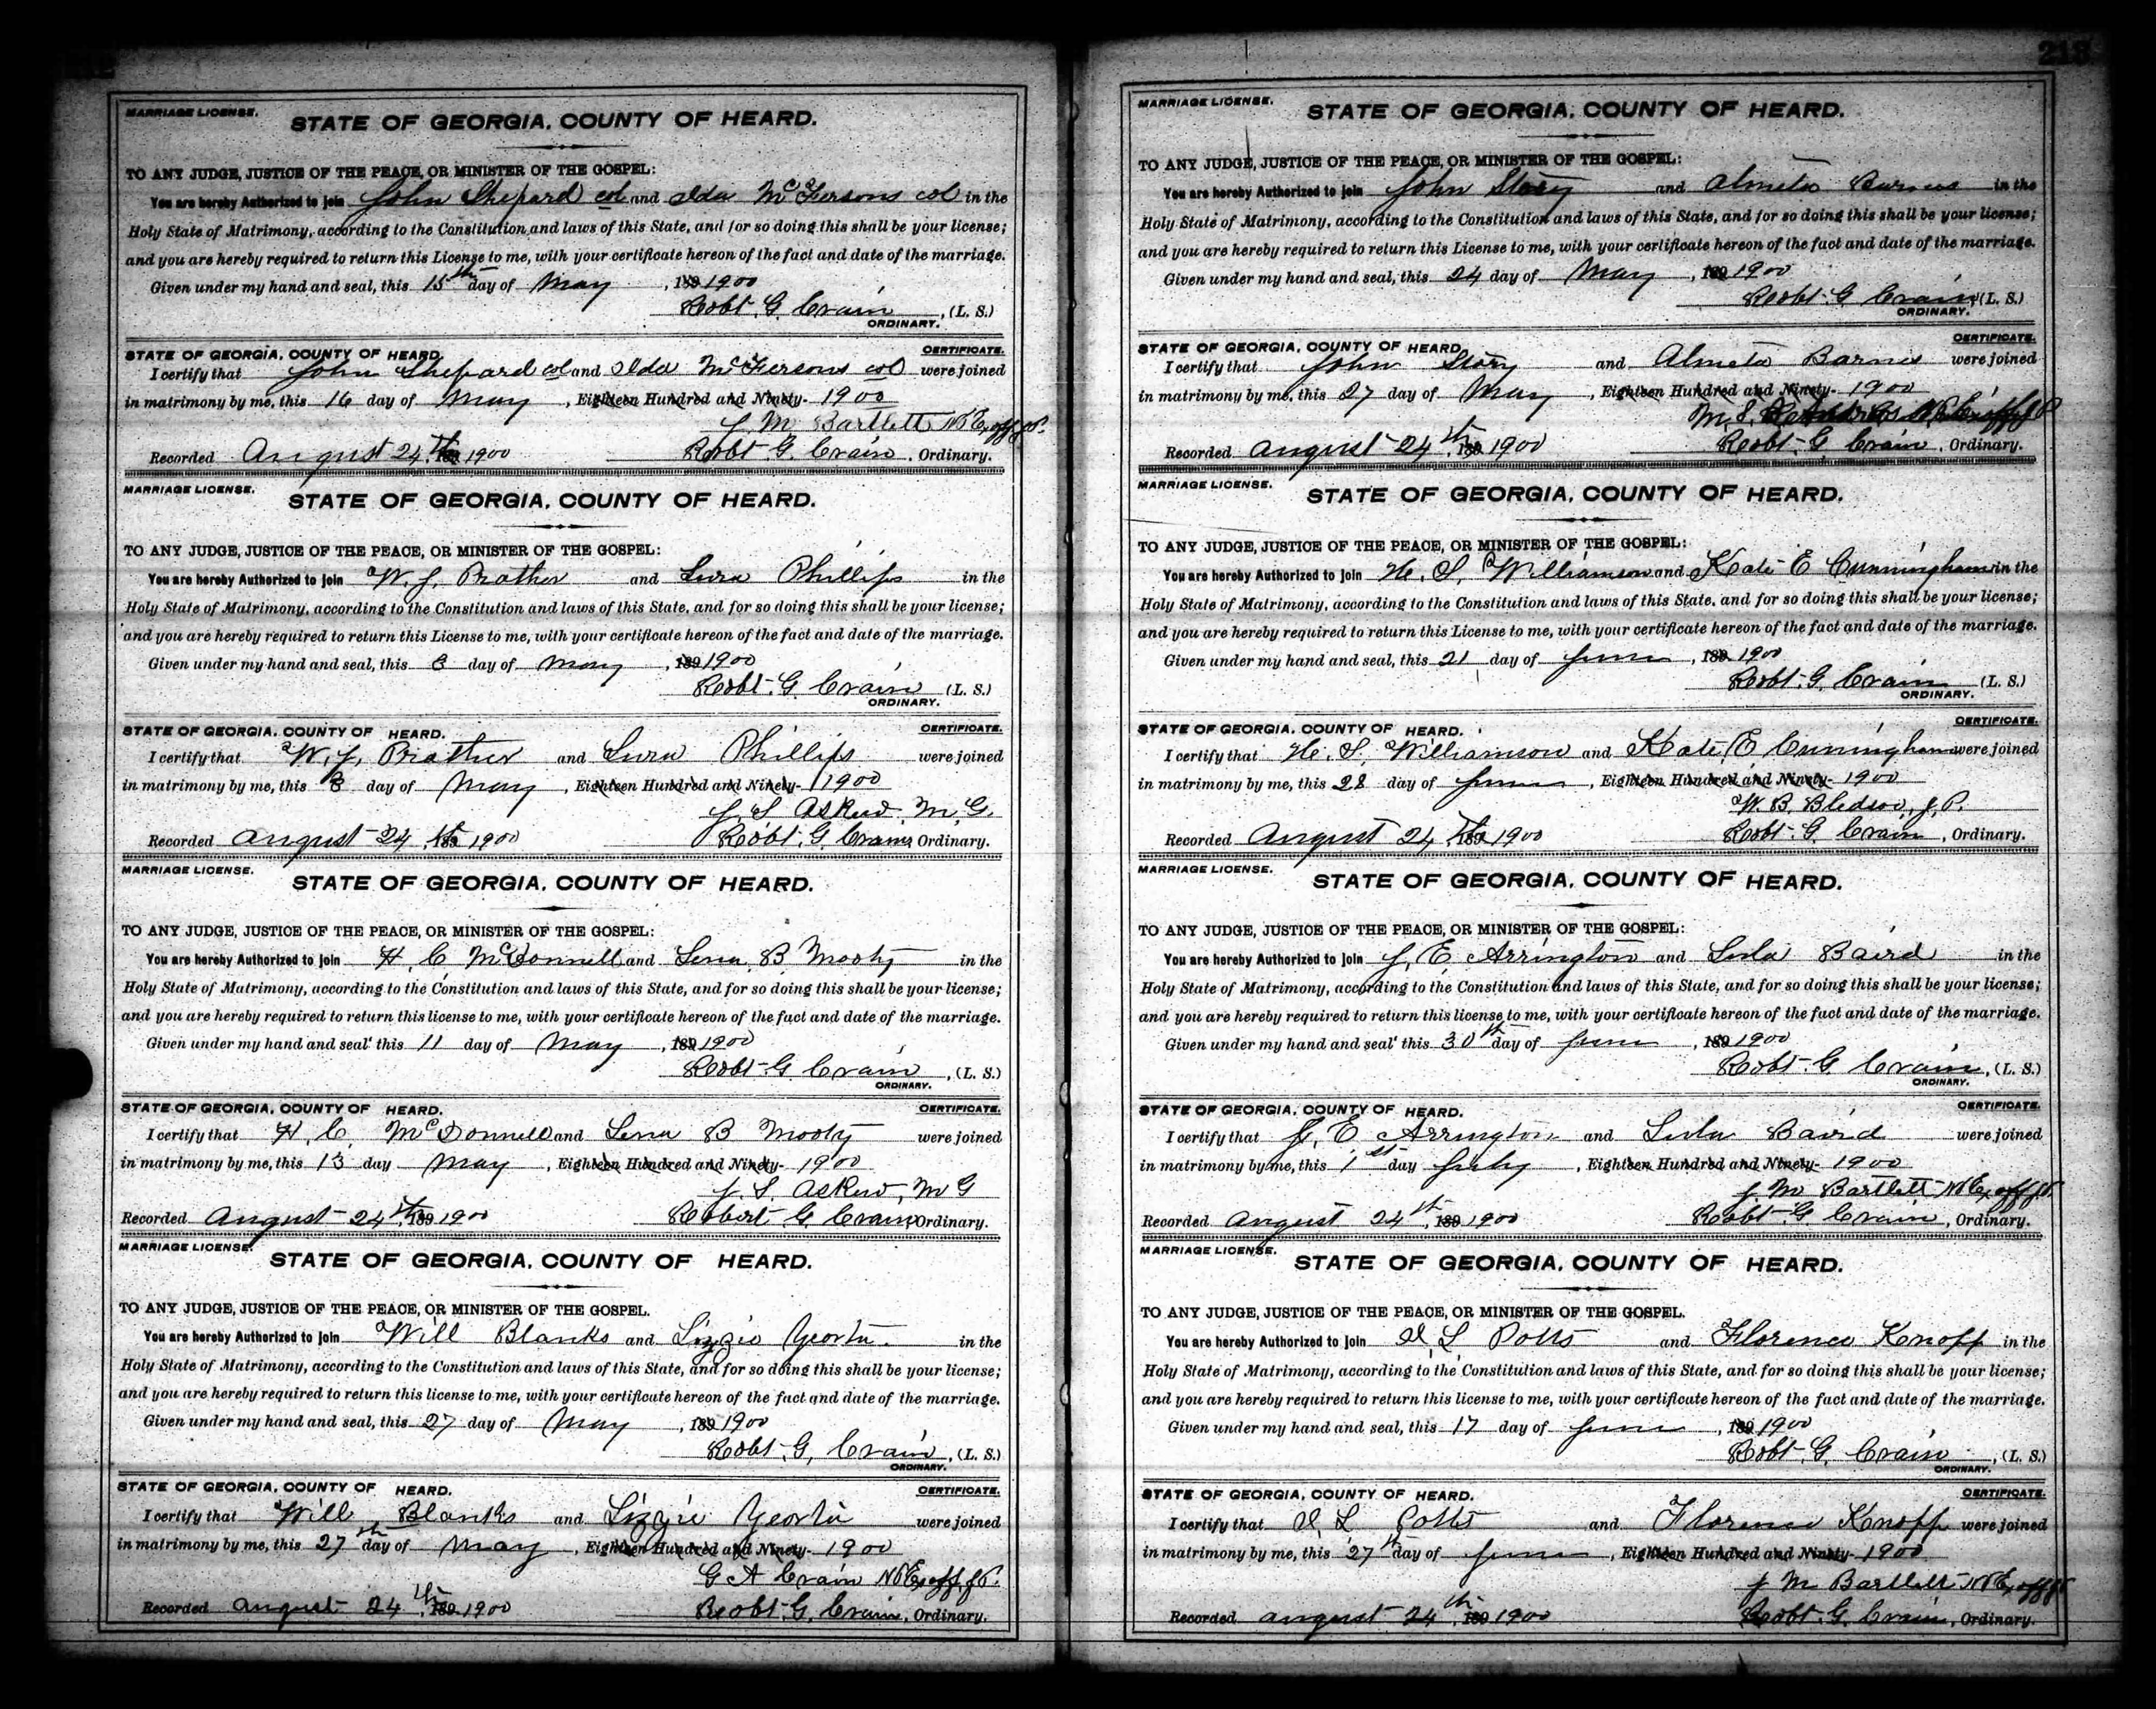 MARRIAGE LICENSE.
STATE OF GEORGIA, COUNTY OF HEARD.
TO ANY JUDGE, JUSTICE OF THE PEACE, OR MINISTER OF THE GOSPEL:
You are hereby Authorized to join John Shepard col and Ida McFersons col in the
Holy State of Matrimony, according to the Constitution and laws of this State, and for so doing this shall be your license;
and you are hereby required to return this License to me, with your certificate hereon of the fact and date of the marriage.
Given under my hand and seal, this 15th day of May, 189 1900
Robt. G. Crain, (L. S.)
ORDINARY.
STATE OF GEORGIA, COUNTY OF HEARD. CERTIFICATE.
I certify that John Shepard col and Ida McFersons col were joined
in matrimony by me, this 16 day of May, Eighteen Hundred and Ninety- 1900
J. M. Bartlett N.P. Ex off J.P.
Recorded August 24th, 189 1900 Robt. G. Crain, Ordinary.
MARRIAGE LICENSE.
STATE OF GEORGIA, COUNTY OF HEARD.
TO ANY JUDGE, JUSTICE OF THE PEACE, OR MINISTER OF THE GOSPEL:
You are hereby Authorized to join W. J. Prather and Lura Phillips in the
Holy State of Matrimony, according to the Constitution and laws of this State, and for so doing this shall be your license;
and you are hereby required to return this License to me, with your certificate hereon of the fact and date of the marriage.
Given under my hand and seal, this 3 day of May, 189 1900
Robt. G. Crain (L. S.)
ORDINARY.
STATE OF GEORGIA, COUNTY OF HEARD. CERTIFICATE.
I certify that W. J. Prather and Lura Phillips were joined
in matrimony by me, this 3 day of May, Eighteen Hundred and Ninety- 1900
J. S. Askew, M. G.
Recorded August 24th, 189 1900 Robt. G. Crain, Ordinary.
MARRIAGE LICENSE.
STATE OF GEORGIA, COUNTY OF HEARD.
TO ANY JUDGE, JUSTICE OF THE PEACE, OR MINISTER OF THE GOSPEL:
You are hereby Authorized to join H. C. McDonnell and Lena B Mooty in the
Holy State of Matrimony, according to the Constitution and laws of this State, and for so doing this shall be your license;
and you are hereby required to return this license to me, with your certificate hereon of the fact and date of the marriage.
Given under my hand and seal' this 11 day of May, 189 1900
Robt. G. Crain, (L. S.)
ORDINARY.
STATE OF GEORGIA, COUNTY OF HEARD. CERTIFICATE.
I certify that H. C. McDonnell and Lena B Mooty were joined
in matrimony by me, this 13 day May, Eighteen Hundred and Ninety- 1900
J. S. Askew, M G
Recorded August 24th, 189 1900 Robert G Crain, Ordinary.
MARRIAGE LICENSE.
STATE OF GEORGIA, COUNTY OF HEARD.
TO ANY JUDGE, JUSTICE OF THE PEACE, OR MINISTER OF THE GOSPEL.
You are hereby Authorized to join Will Blanks and Lizzie in the
Holy State of Matrimony, according to the Constitution and laws of this State, and for so doing this shall be your license;
and you are hereby required to return this license to me, with your certificate hereon of the fact and date of the marriage.
Given under my hand and seal, this 27 day of May, 189 1900
Robt. G, Crain, (L. S.)
ORDINARY.
STATE OF GEORGIA, COUNTY OF HEARD. CERTIFICATE.
I certify that Will Blanks and Lizzie were joined
in matrimony by me, this 27th day of May, Eighteen Hundred and Ninety- 1900
G A Crain N P Ex off J.P.
Recorded August 24th, 189 1900 Robt. G. Crain, Ordinary.
213
MARRIAGE LICENSE.
STATE OF GEORGIA, COUNTY OF HEARD.
TO ANY JUDGE, JUSTICE OF THE PEACE, OR MINISTER OF THE GOSPEL:
You are hereby Authorized to join John Story and Almeta Barnes in the
Holy State of Matrimony, according to the Constitution and laws of this State, and for so doing this shall be your license;
and you are hereby required to return this License to me, with your certificate hereon of the fact and date of the marriage.
Given under my hand and seal, this 24 day of May, 189 1900
Robt. G Crain, (L. S.)
ORDINARY.
STATE OF GEORGIA, COUNTY OF HEARD. CERTIFICATE.
I certify that John Story and Almeta Barnes were joined
in matrimony by me, this 27 day of May, Eighteen Hundred and Ninety- 1900
M. S.
Recorded August 24th, 189 1900 Robt. G. Crain, Ordinary.
MARRIAGE LICENSE.
STATE OF GEORGIA, COUNTY OF HEARD.
TO ANY JUDGE, JUSTICE OF THE PEACE, OR MINISTER OF THE GOSPEL:
You are hereby Authorized to join H. S. Williamson and Kate E Cunningham in the
Holy State of Matrimony, according to the Constitution and laws of this State, and for so doing this shall be your license;
and you are hereby required to return this License to me, with your certificate hereon of the fact and date of the marriage.
Given under my hand and seal, this 21 day of June, 189 1900
Robt. G. Crain (L. S.)
ORDINARY.
STATE OF GEORGIA, COUNTY OF HEARD. CERTIFICATE.
I certify that H. S. Williamson and Kate E Cunningham were joined
in matrimony by me, this 28 day of June, Eighteen Hundred and Ninety- 1900
W. B. Bledsoe, J. P.
Recorded August 24th, 189 1900 Robt. G Crain, Ordinary.
MARRIAGE LICENSE.
STATE OF GEORGIA, COUNTY OF HEARD.
TO ANY JUDGE, JUSTICE OF THE PEACE, OR MINISTER OF THE GOSPEL:
You are hereby Authorized to join J. E. Arrington and Lula Baird in the
Holy State of Matrimony, according to the Constitution and laws of this State, and for so doing this shall be your license;
and you are hereby required to return this license to me, with your certificate hereon of the fact and date of the marriage.
Given under my hand and seal' this 30th day of June, 189 1900
Robt. G. Crain, (L. S.)
ORDINARY.
STATE OF GEORGIA, COUNTY OF HEARD. CERTIFICATE.
I certify that J. E Arrington and Lula Baird were joined
in matrimony by me, this 1st day July, Eighteen Hundred and Ninety- 1900
J. M Bartlett N P Ex off J.P.
Recorded August 24th, 189 1900 Robt. G Crain, Ordinary.
MARRIAGE LICENSE.
STATE OF GEORGIA, COUNTY OF HEARD.
TO ANY JUDGE, JUSTICE OF THE PEACE, OR MINISTER OF THE GOSPEL.
You are hereby Authorized to join I. L Potts and Florence Knopf in the
Holy State of Matrimony, according to the Constitution and laws of this State, and for so doing this shall be your license;
and you are hereby required to return this license to me, with your certificate hereon of the fact and date of the marriage.
Given under my hand and seal, this 17 day of June, 189 1900
Robt. G. Crain, (L. S.)
ORDINARY.
STATE OF GEORGIA, COUNTY OF HEARD. CERTIFICATE.
I certify that I. L Potts and Florence Knopf were joined
in matrimony by me, this 27th day of June, Eighteen Hundred and Ninety- 1900
J M Bartlett N P Ex off J.P.
Recorded August 24th, 189 1900 Robt. G. Crain, Ordinary.